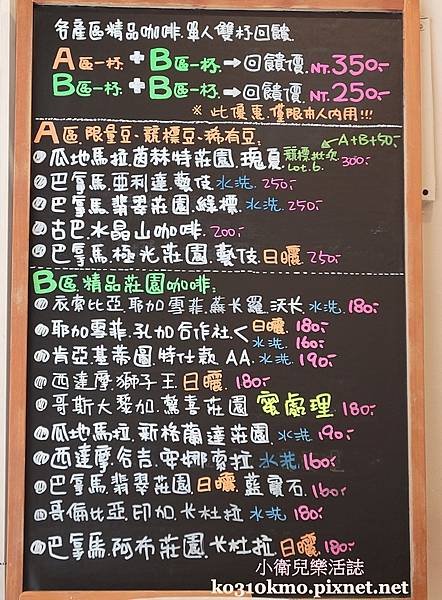 各產區精品咖啡.單人雙杯回饋.
A區一杯 + B區一杯 → 回饋價. NT.350.-
B區一杯 + B區一杯 → 回饋價 NT.250.-
※ 此優惠僅限本人內用!!!
A區.限量豆.競標豆.稀有豆:
A+B+50.-
瓜地馬拉.茵赫特莊園.瑰夏 競標批次 Lot.6. 300.-
巴拿馬.亞利達.藝伎 水洗. 250.-
巴拿馬.翡翠莊園.綠標. 水洗. 250.-
古巴水晶山咖啡. 200.-
巴拿馬.極光莊園.藝伎 日曬. 250.-
B區.精品莊園咖啡:
衣索比亞.耶加雪菲.蕎卡羅.沃卡. 水洗. 180.-
耶加雪菲.孔加合作社< 日曬. 180.-
水洗. 160.-
肯亞.基蒂圖.特仕款 AA. 水洗. 190.-
西達摩.獅子王.日曬. 180.-
哥斯大黎加.驚喜莊園 蜜處理 180.-
瓜地馬拉.新格蘭達莊園. 水洗. 190.-
西達摩.谷吉.安娜索拉 水洗. 160.-
巴拿馬.翡翠莊園.日曬.藍寶石. 160.-
哥倫比亞.印加.卡杜拉 水洗. 180.-
巴拿馬.阿布莊園.卡杜拉.日曬. 180.-
小衛兒樂活誌
ko310kmo.pixnet.net